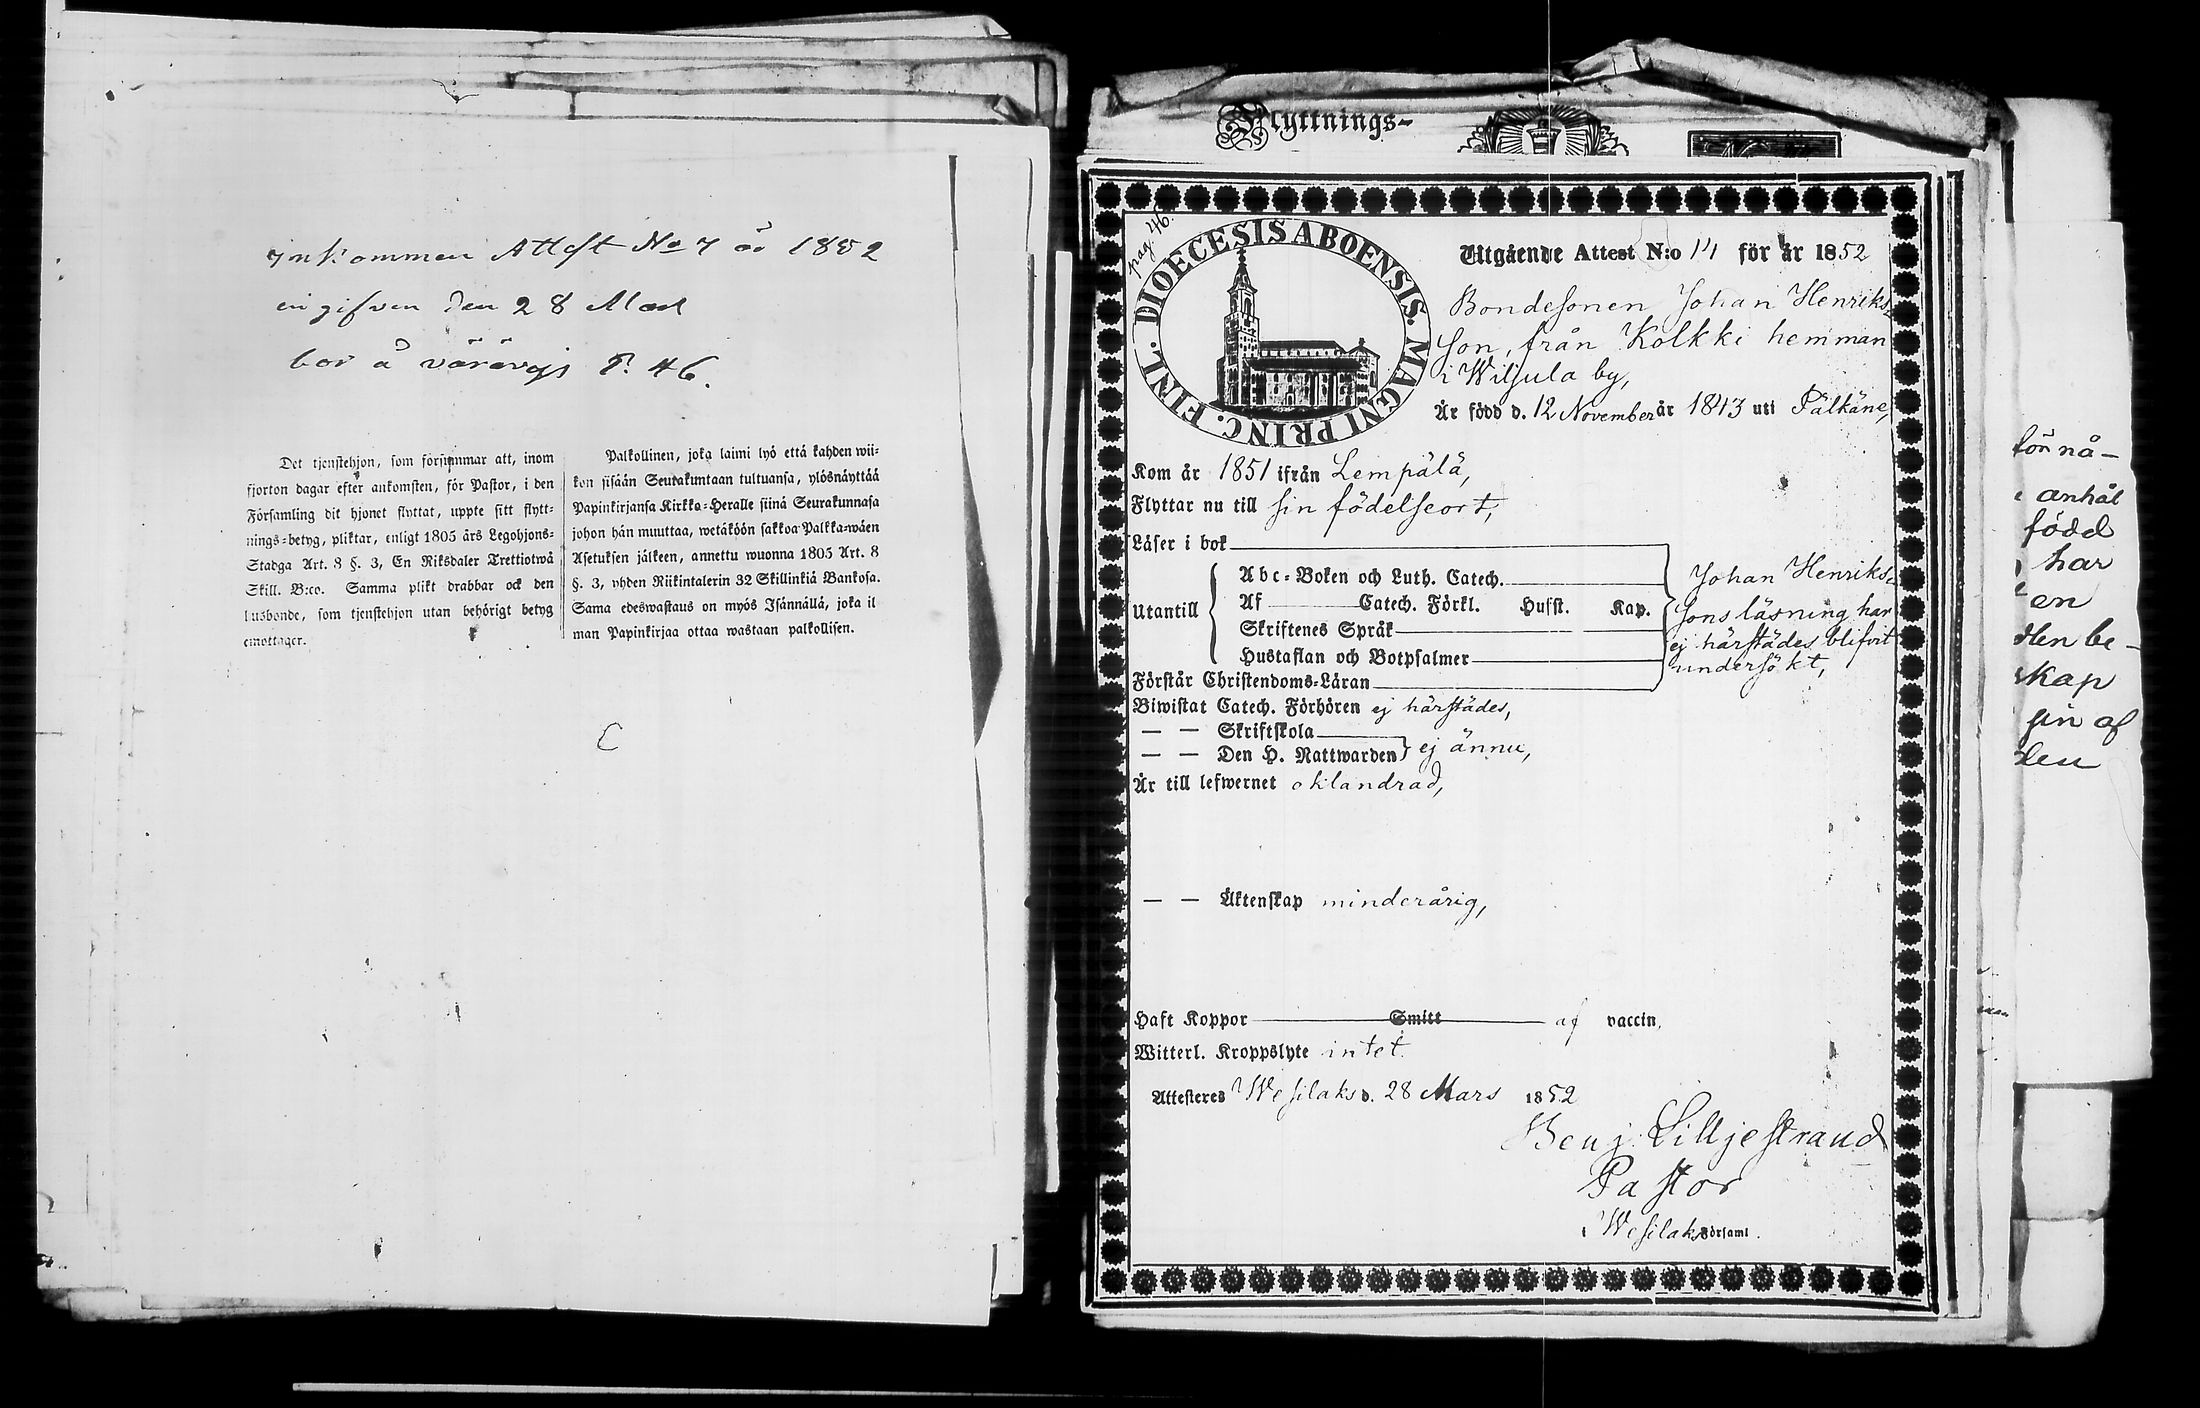 inkommen Attest No 7 år 1852
ingifven den 28 Mart
bor å P. 46.
Det tjenstehjon, som försummar att, inom
fjorton dagar efter ankomsten, för Pastor, i den
Församling dit hjonet flyttat, uppte sitt flytt-
nings-betyg, pliktar, enligt 1805 års Legohjons-
Stadga Art. 8 §. 3, En Riksdaler Trettiotwå
Skill. B:co. Samma plikt drabbar ock den
husbonde, som tjenstehjon utan behörigt betyg
emottager.
Palkollinen, joka laimi lyö että kahden wii-
kon sisään Seurakuntaan tultuansa, ylösnäyttää
Papinkirjansa Kirkko-Herralle siinä Seurakunnasa
johon hän muuttaa, wetäköön sakkoa Palkka-wäen
Asetuksen jälkeen, annettu wuonna 1805 Art. 8
§. 3, yhden Riikintalerin 32 Skillinkiä Bankosa.
Sama edeswastaus on myös Isännällä, joka il
man Papinkirjaa ottaa wastaan palkollisen.
C
Flyttnings-
pag. 46.
DIOECESIS ABOENSIS. MAGNI PRINC. FINL.
Utgående Attest N:o 14 för år 1852
Bondesonen Johan Henriks-
son, från Kolkki hemman
i Wiljula by,
Är född d. 12 November år 1843 uti Pälkäne,
Kom år 1851 ifrån Lempälä,
Flyttar nu till sin födelseort,
Läser i bok
Utantill
Abc-Boken och Luth. Catech.
Af Catech. Förkl. Hufst. Kap.
Skriftenes Språk
Hustaflan och Botpsalmer
Förstår Christendoms-Läran
Johan Henriks-
sons läsning har
ej härstädes blifvit
undersökt,
Biwistat Catech. Förhören ej härstädes,
— — Skriftskola
— — Den H. Nattwarden ej ännu,
Är till lefwernet oklandrad,
— — Äktenskap minderårig,
Haft Koppor Smitt af vaccin,
Witterl. Kroppslyte intet.
Attesteres Wesilaks d. 28 Mars 1852
Benj. Lilljestrand
Pastor
i Wesilaks Församl.
för nå-
anhål
född
har
en
den be-
skap
sin af
den